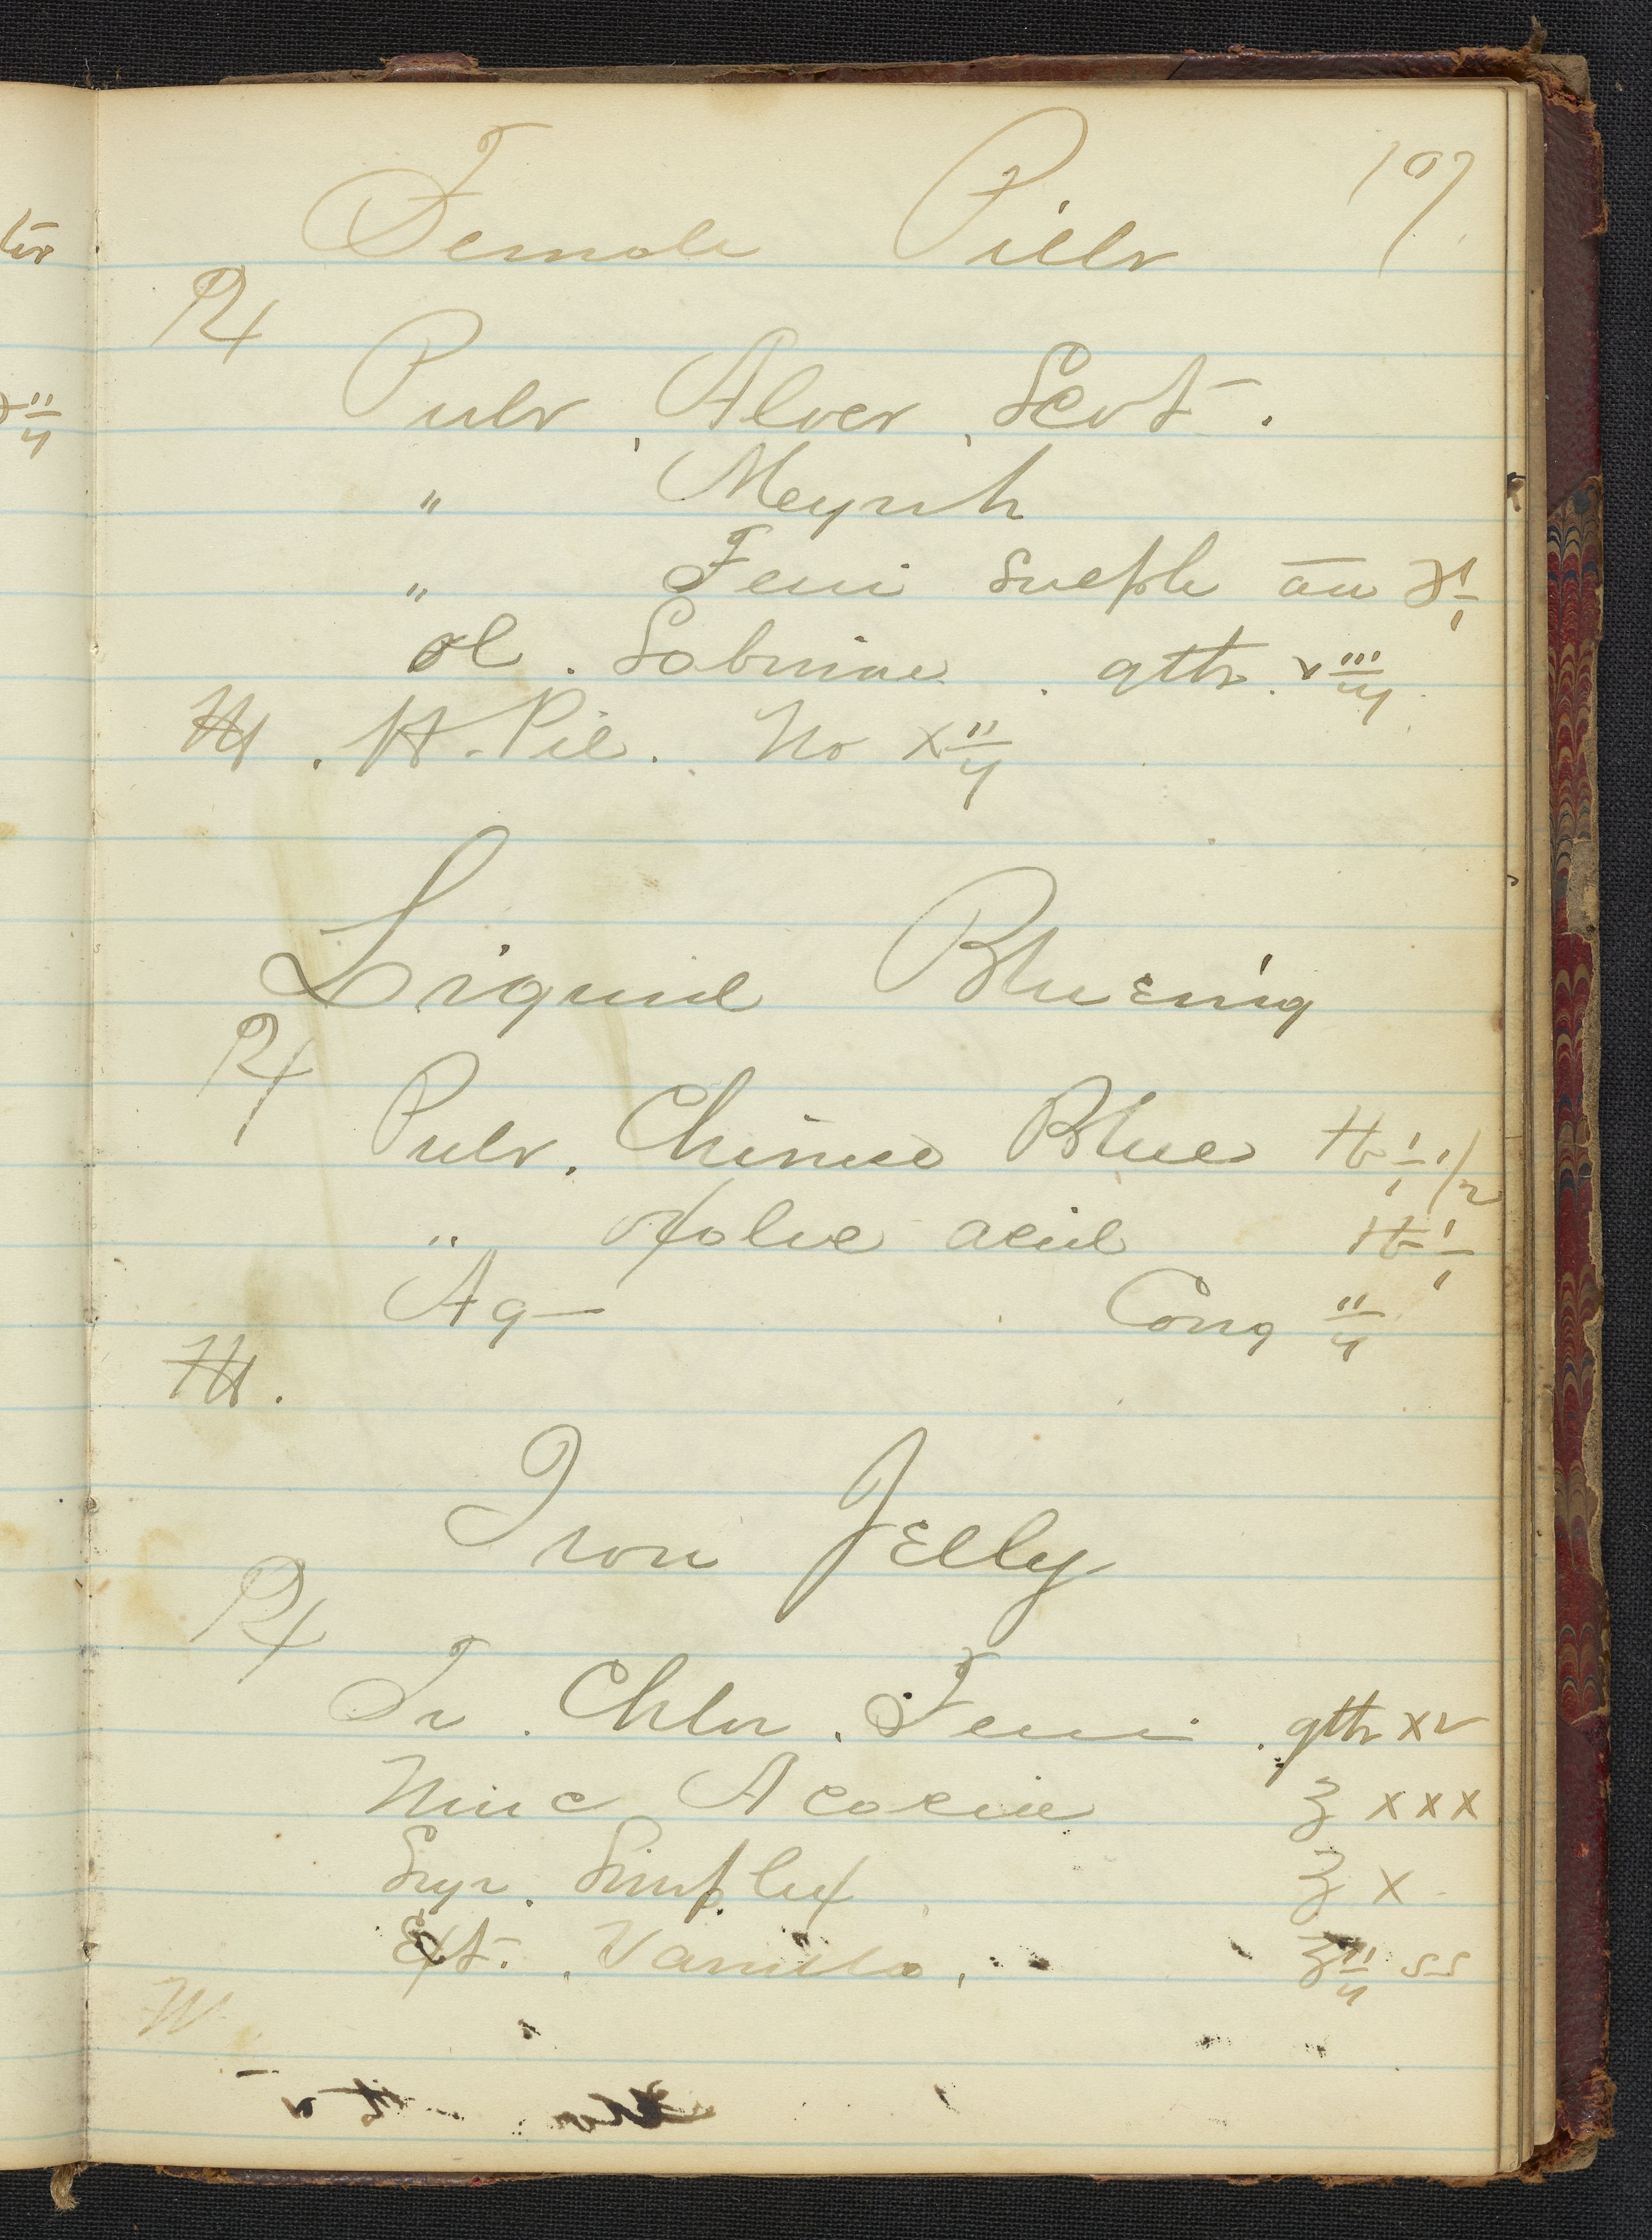 107
Female Pills
℞
Pulv. Aloes. Scot.
" Myrrh
" Ferri Sulph āā ʒi
Ol. Sabinae. gtts. viii
M. ft. Pil. No xii
Liquid Blueing
℞
Pulv. Chinese Blue ℔ i 1/2
" Oxalic acid ℔ i
Aq Cong ii
M.
Iron Jelly
℞
Tr. Chlor. Ferri. gtts xv
Muc Acaciae ʒ xxx
Syr. Simplex ʒ x
Ext. Vanilla. ʒ ii ss
M